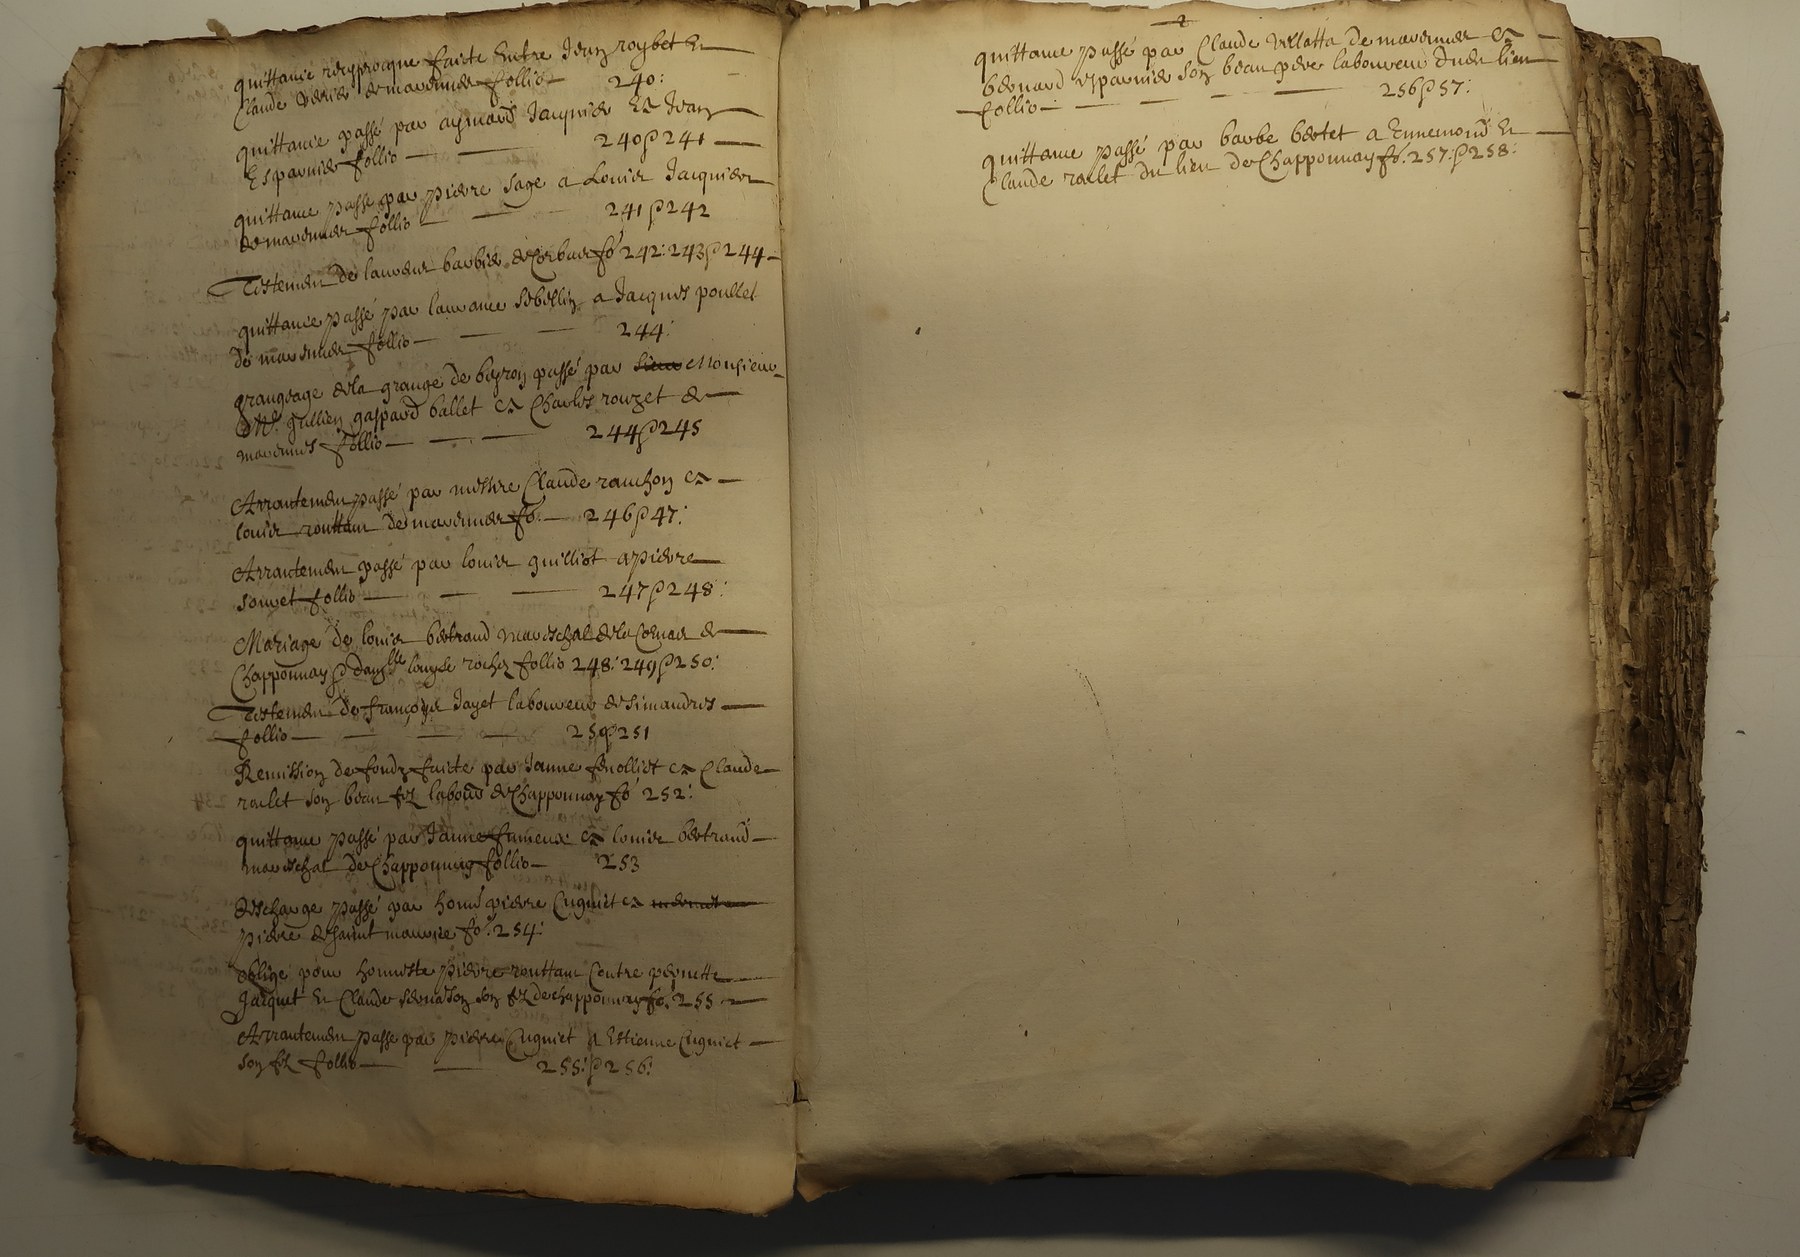 quittance recyprocque faicte Entre Jean roybet Et
Claude de marennes follio 240:
quittance passé par aymard Jacquier Et Jean
Esparnier follio 240 & 241
quittance passé par pierre sage a Louis Jacquier
de marennes follio 241 & 242
Testement de laurens barbier de Corbas fo 242: 243 & 244
quittance passé par laurance sebellin a Jacques poullet
de marennes follio 244:
grangeage de la grange de bayron passé par sieur Monsieur
Mr. Jullien gaspard ballet et Charles rouzet de
marennes follio 244 & 245
Arrantement passé par messire Claude ranchon et
louis routtan de marennes fo. 246 & 47:
Arrantement passé par louis guilliot a pierre
souvet follio 247 & 248:
Mariage de louis bertrand mareschal de de
Chapponnay & damlle louyse rochez follio 248: 249 & 250:
Testement de françoys Jayet laboureur de simandres
follio 250 & 251
Remission de fondz faicte par Janne fenolliet et Claude
raclet son beau fz labour de Chapponnay fo 252:
quittance passé par Janne fumeux et louis bertrand
mareschal de Chapponnay follio 253
descharge passé par honne pierre Cugniet et
pierre de saint maurice fo. 254:
oblige pour honneste pierre routtan Contre pernette
Jacquet Et Claude son fz de chapponnay fo. 255
Arrantement passé par pierre Cugniet a Estienne Cugniet
son fz follio 255: & 256:
2
quittance passé par Claude Villatta de marennes Et
bernard esparnier son beau pere laboureur dudit lieu
follio 256 & 57:
quittance passé par barbe bertet a Ennemond Et
Claude raclet du lieu de Chapponnay fo. 257: & 258: